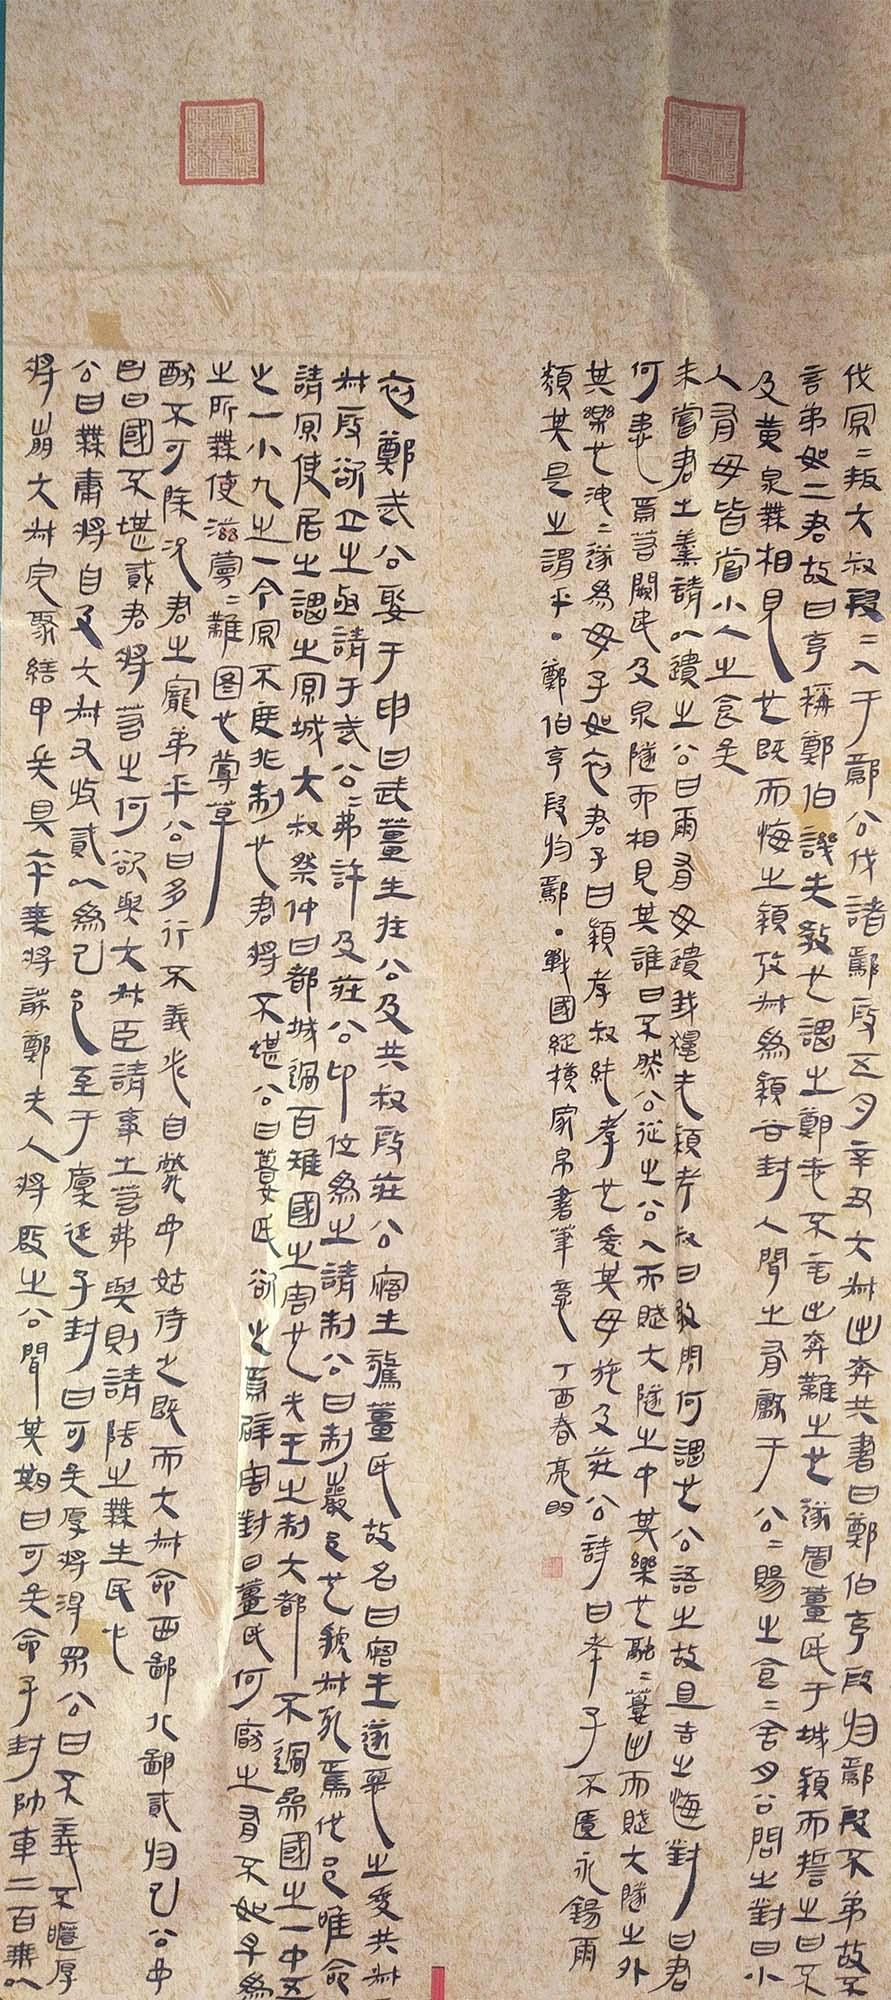 初鄭武公娶于申曰武薑生莊公及共叔段莊公寤生驚薑氏故名曰寤生遂惡之愛共叔
叔段欲立之亟請于武公〻弗許及莊公即位為之請制公曰制巖邑也虢叔死焉佗邑唯命
請京使居之謂之京城大叔祭仲曰都城過百雉國之害也先王之制大都不過參國之一中五
之一小九之一今京不度非制也君將不堪公曰薑氏欲之焉辟害對曰薑氏何厭之有不如早為
之所無使滋蔓〻難圖也蔓草
猶不可除況君之寵弟乎公曰多行不義必自斃子姑待之既而大叔命西鄙北鄙貳於己公子
呂曰國不堪貳君將若之何欲與大叔臣請事之若弗與則請除之無生民心
公曰無庸將自及大叔又收貳以為己邑至于廩延子封曰可矣厚將得眾公曰不義不暱厚
將崩大叔完聚繕甲兵具卒乘將襲鄭夫人將啟之公聞其期曰可矣命子封帥車二百乘以
伐京〻叛大叔段〻入于鄢公伐諸鄢段五月辛丑大叔出奔共書曰鄭伯克段於鄢段不弟故不
言弟如二君故曰克稱鄭伯譏失教也謂之鄭志不言出奔難之也遂寘薑氏于城潁而誓之曰不
及黃泉無相見也既而悔之潁考叔為潁谷封人聞之有獻于公〻賜之食〻舍肉公問之對曰小
人有母皆嘗小人之食矣
未嘗君之羹請以遺之公曰爾有母遺我獨無潁考叔曰敢問何謂也公語之故且告之悔對曰君
何患焉若闕地及泉隧而相見其誰曰不然公從之公入而賦大隧之中其樂也融〻薑出而賦大隧之外
其樂也洩〻遂為母子如初君子曰潁考叔純孝也愛其母施及莊公詩曰孝子不匱永錫爾
類其是之謂乎。鄭伯克段於鄢。戰國縱橫家帛書筆意 丁酉春亮明